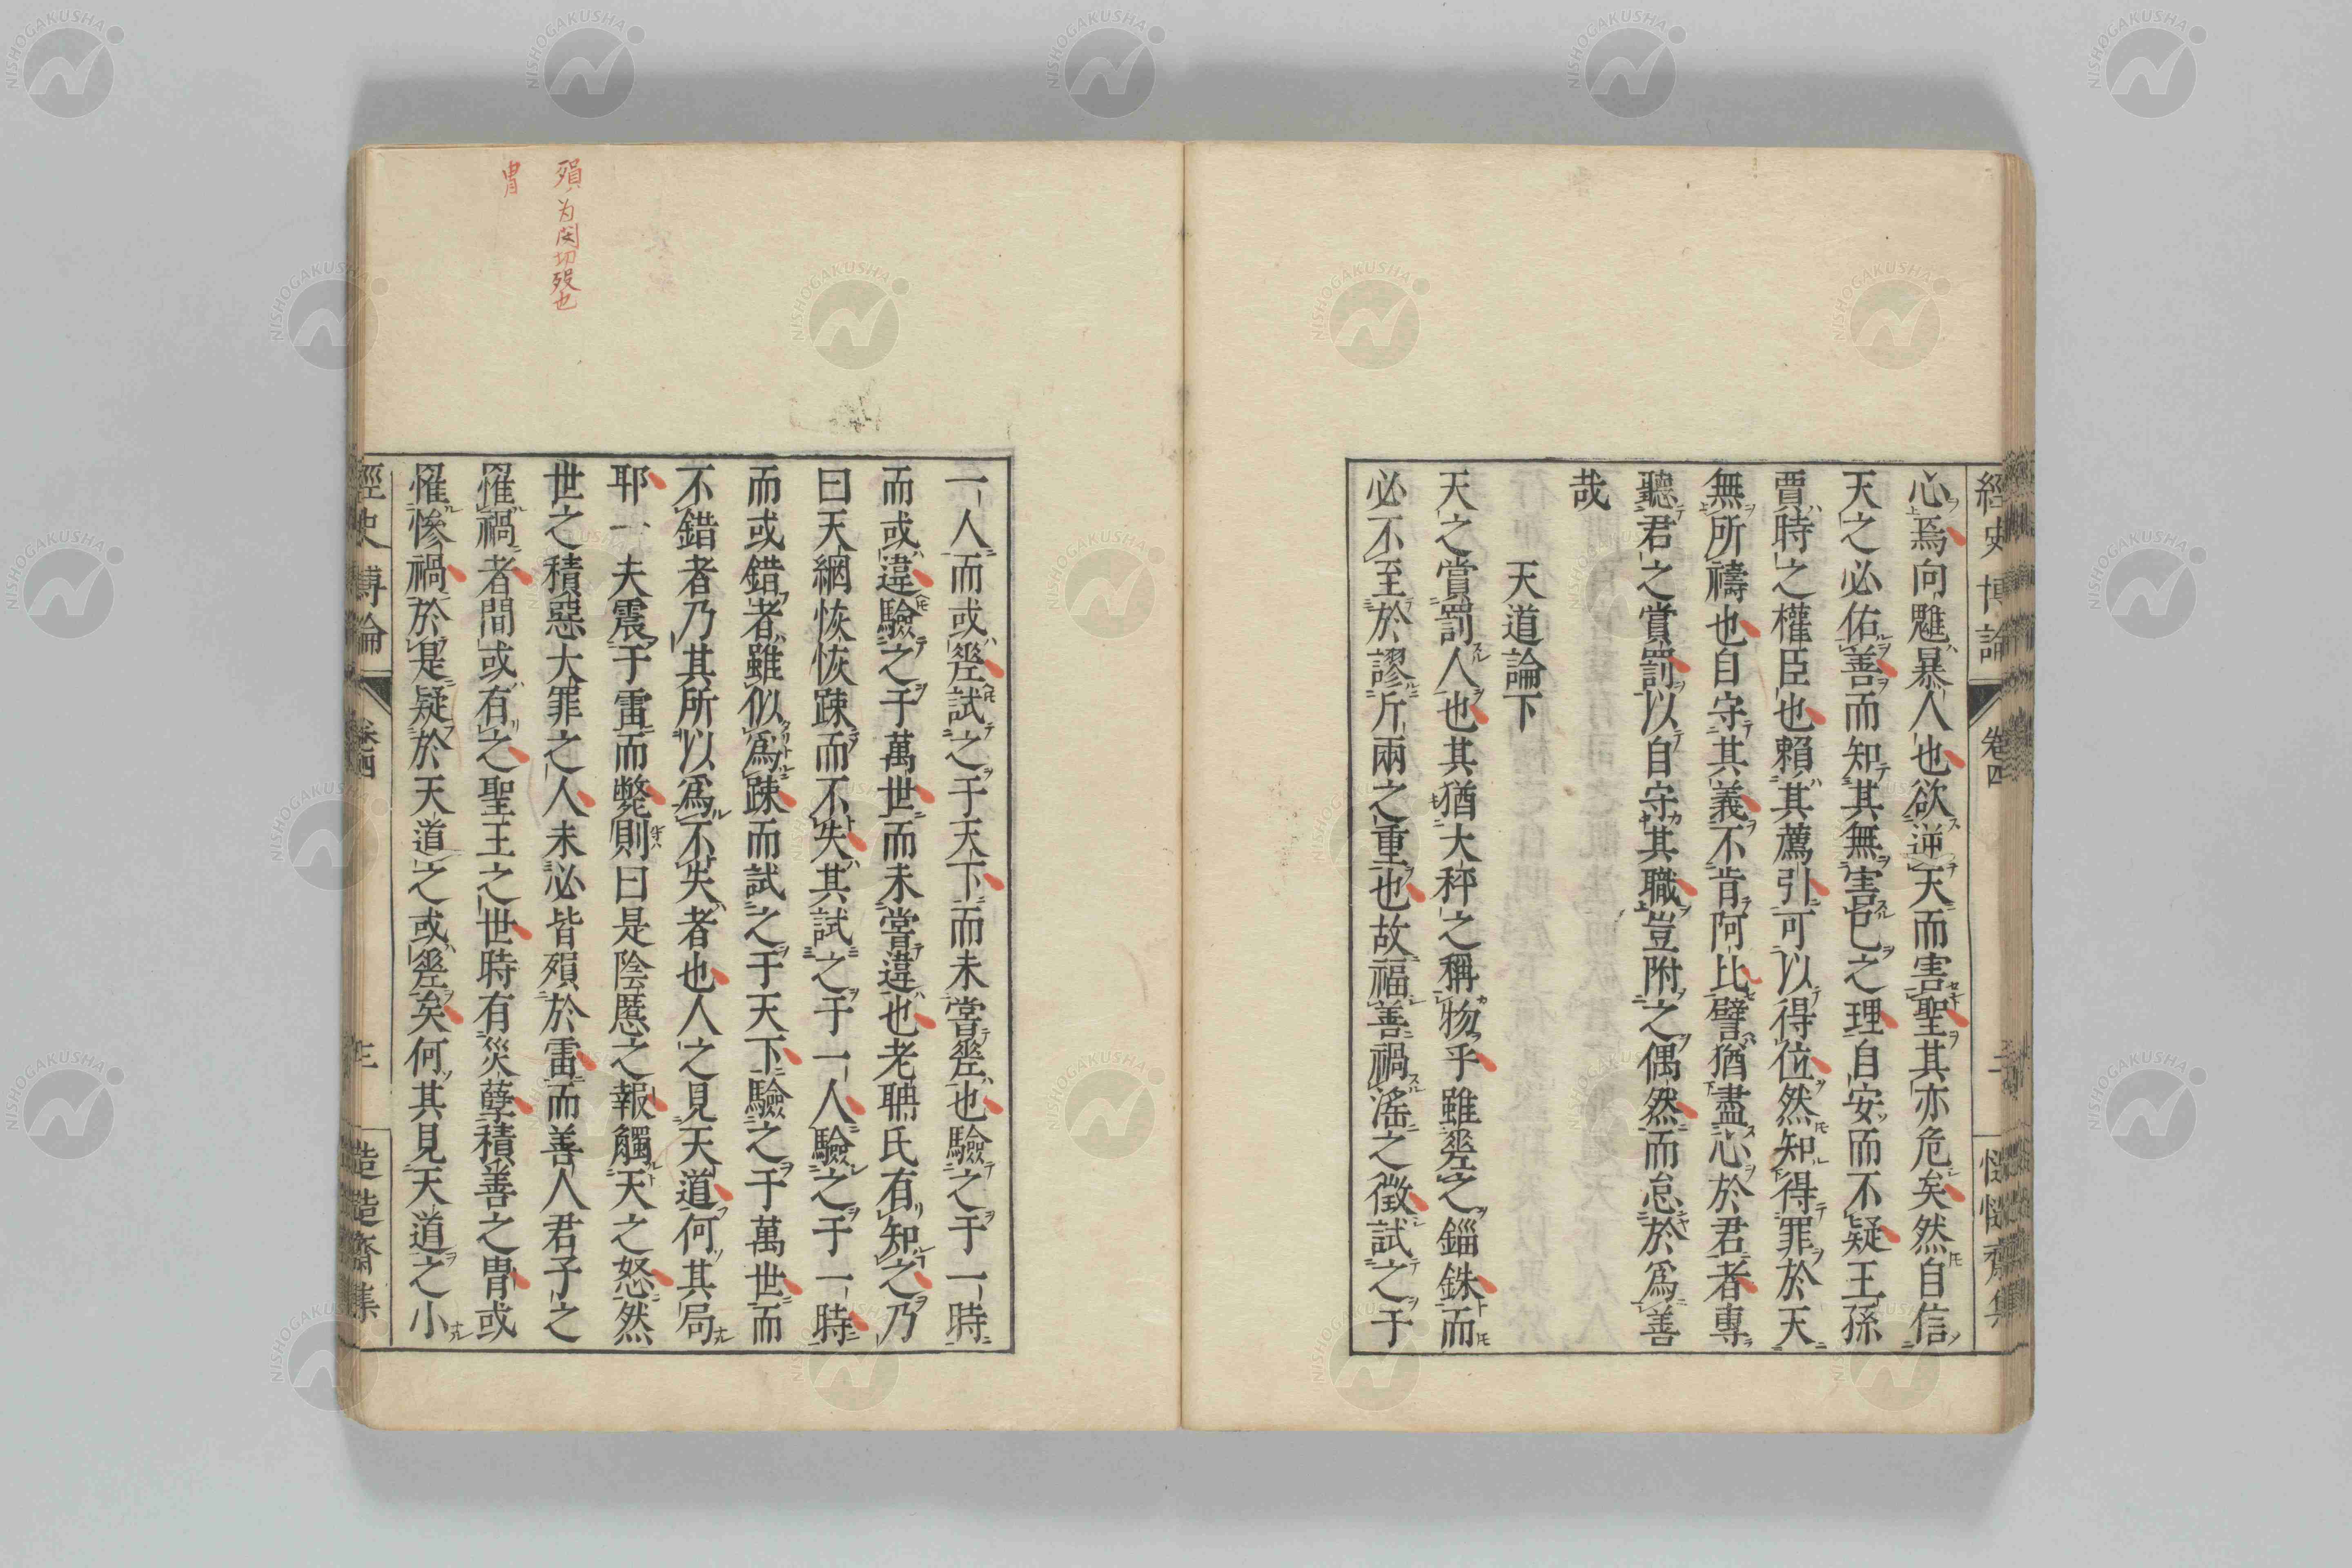 經史博論
卷四
二
慥慥齋集
心焉向魋暴人也欲逆天而害聖其亦危矣然自信
天之必佑善而知其無害已之理自安而不疑王孫
賈時之權臣也賴其薦引可以得位然知得罪於天
無所禱也自守其義不肯阿比譬猶盡心於君者專
聽君之賞罰以自守其職豈附之偶然而怠於爲善
哉
天道論下
天之賞罰人也其猶大秤之稱物乎雖差之錙銖而
必不至於謬斤兩之重也故福善禍淫之徵試之于
一人而或差試之于天下而未嘗差也驗之于一時
而或違驗之于萬世而未嘗違也老聃氏有知之乃
曰天網恢恢踈而不失其試之于一人驗之于一時
而或錯者雖似爲踈而試之于天下驗之于萬世而
不錯者乃其所以爲不失者也人之見天道何其局
耶一夫震于雷而斃則曰是陰慝之報觸天之怒然
世之積惡大罪之人未必皆殞於雷而善人君子之
罹禍者間或有之聖王之世時有災孽積善之胄或
罹慘禍於是疑於天道之或差矣何其見天道之小
經史博論
卷四
三
慥慥齋集
殞为閔切歿也
胄
NISHOGAKUSHA